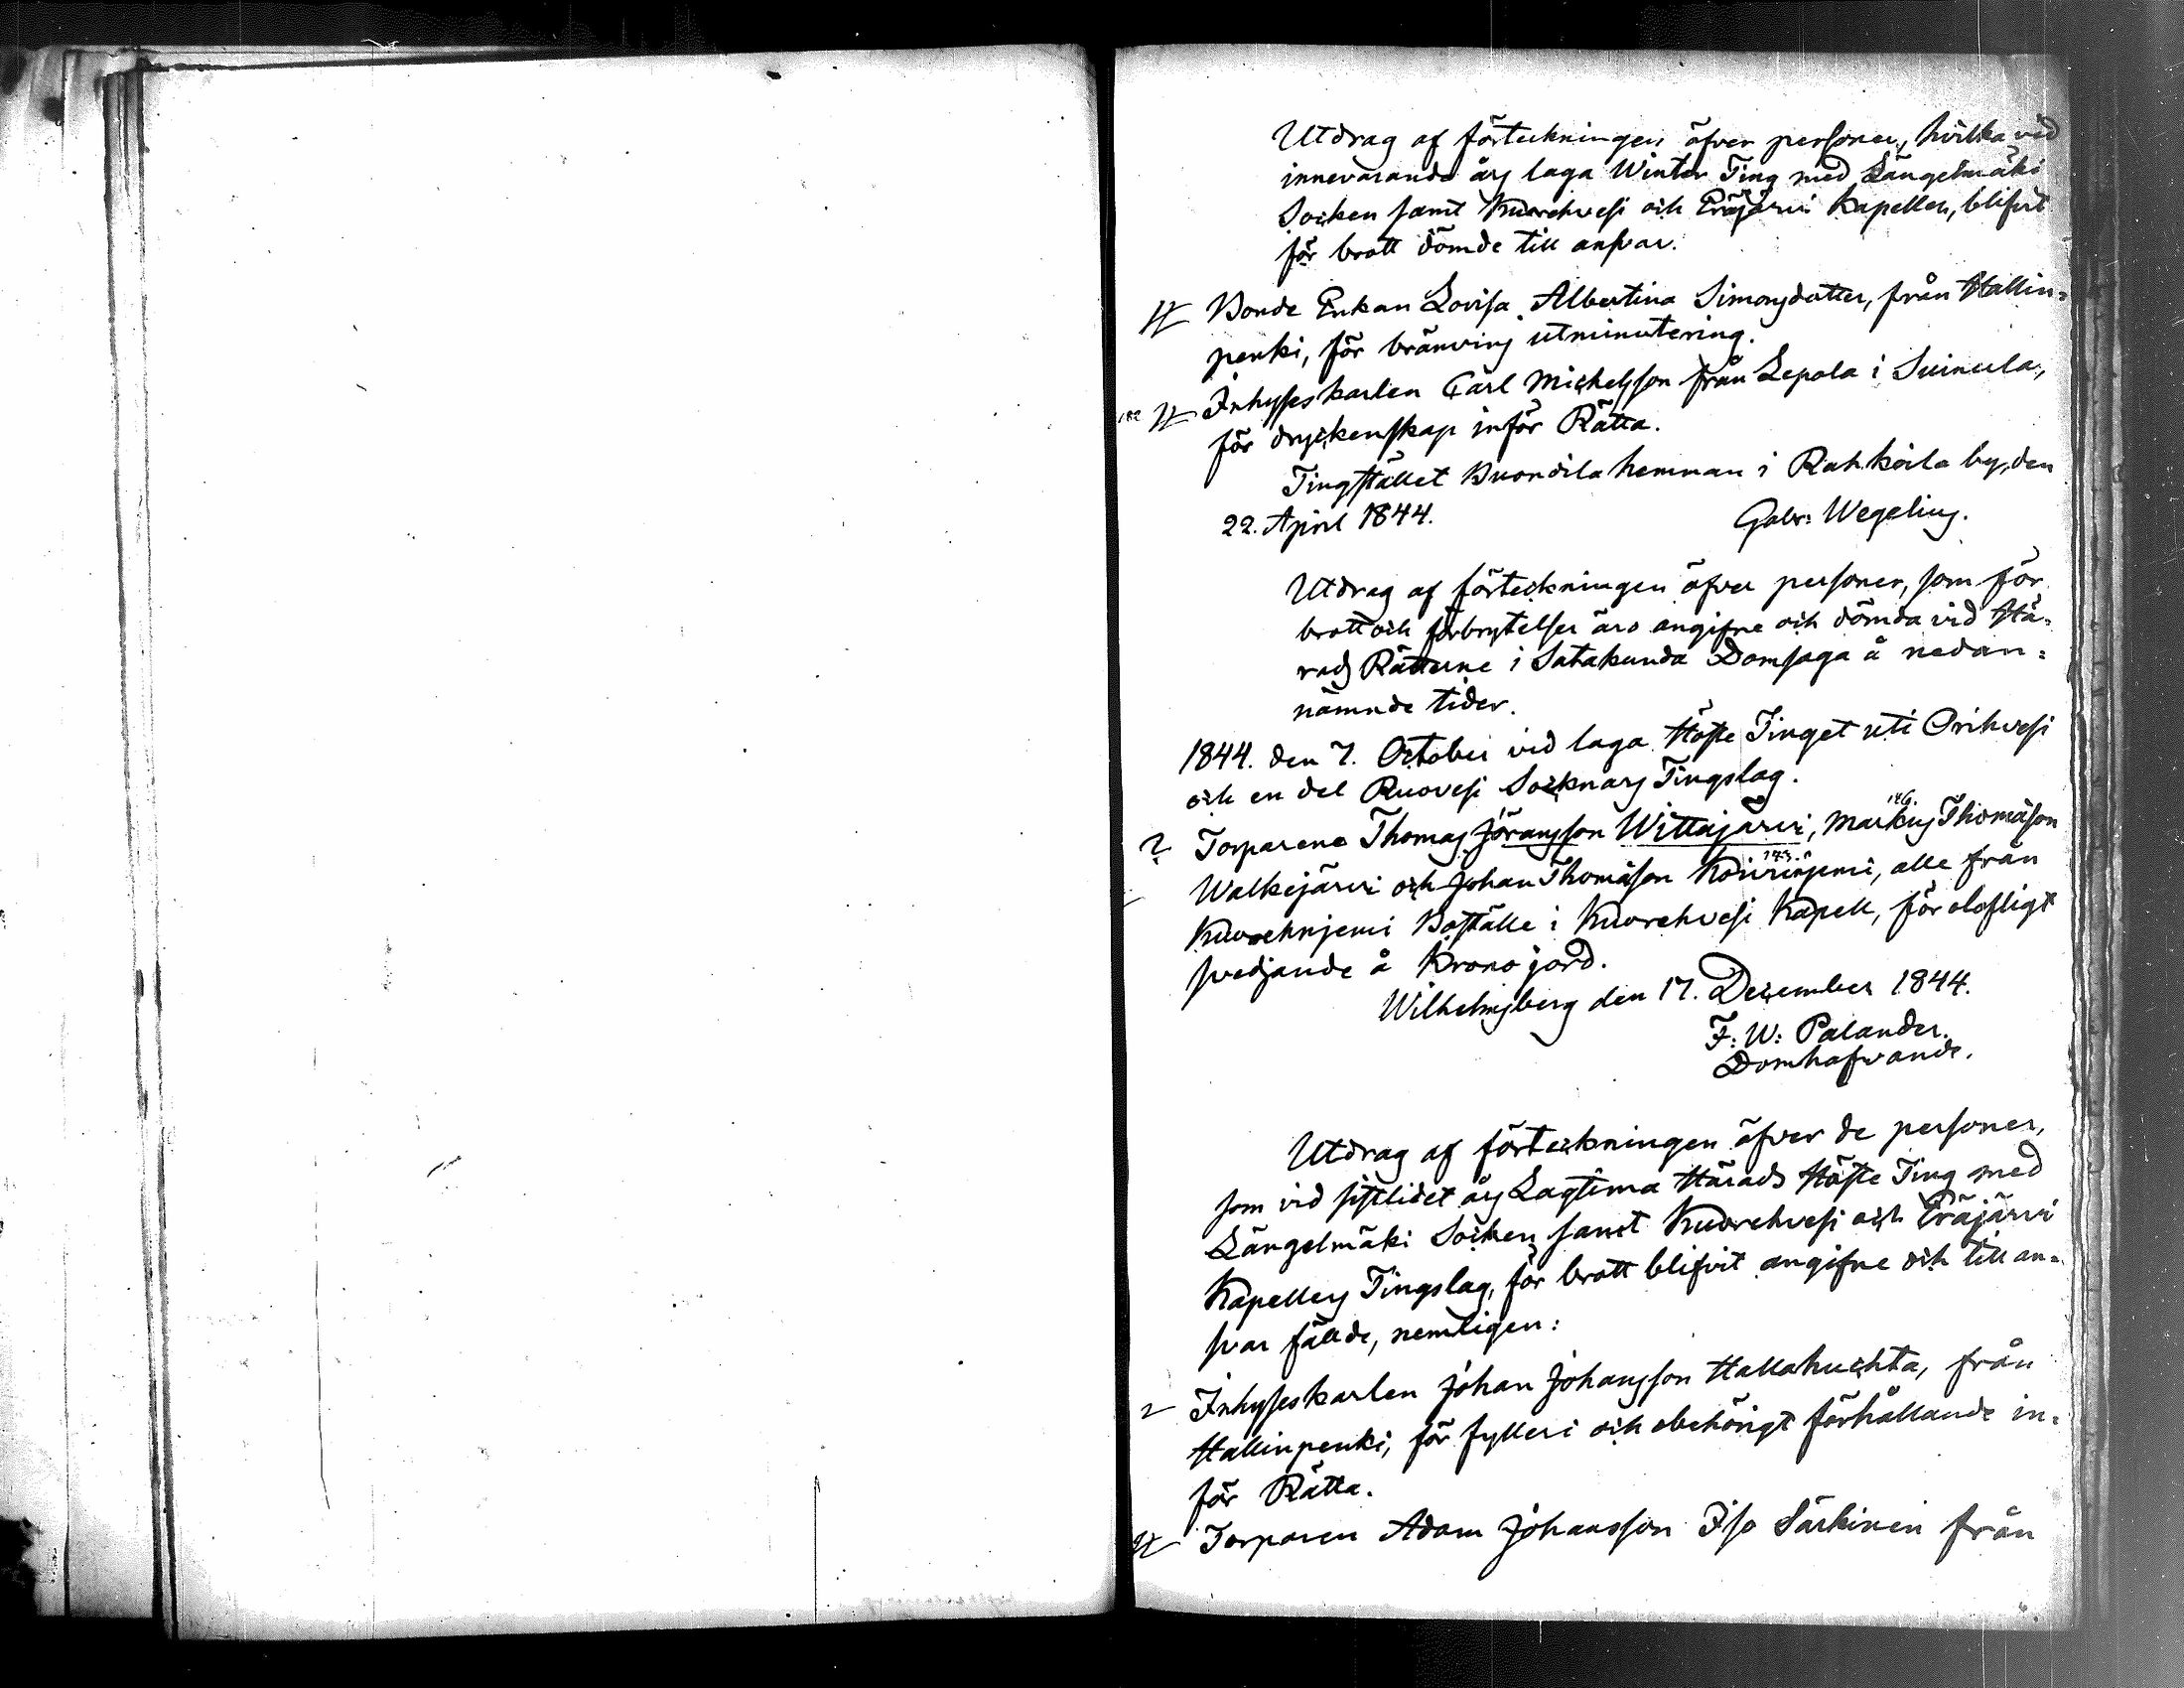 Utdrag af förteckningen öfver personer, hvilka vid
innevarande års laga Winter Ting med Längelmäki
Socken samt Kuorehvesi och Eräjärvi Kapeller, blifvit
för brott dömde till ansvar.
Bonde Enkan Lovisa Albertina Simonsdotter, från Hallin=
penki, för bränvins utminutering.
182 Inhyseskarlen Carl Michelsson från Lepola i Suinula,
för dryckenskap inför Rätta.
Tingstället Buorila hemman i Rahkoila by, den
22. April 1844. Gabr: Wegelius.
Utdrag af förteckningen öfver personer, som för
brott och förbrytelser äro angifne och dömda vid Hä=
rads Rätterne i Satakunda Domsaga å nedan=
nämnde tider.
1844. den 7. October vid laga Höste Tinget uti Orihvesi
och en del Ruovesi Socknars Tingslag.
146.
? Torparene Thomas Jöransson Wittajärvi, Markus Thomasson
173.
Walkejärvi och Johan Thomasson Koivunjemi, alle från
Kuorehnjemi Boställe i Kuorehvesi Kapell, för olofligt
svedjande å Krono jord.
Wilhelmsberg den 17. December 1844.
F: W: Palander.
Domhafvande.
Utdrag af förteckningen öfver de personer,
som vid sistlidet års Lagtima Härads Höste Ting med
Längelmäki Socken samt Kuorehvesi och Eräjärvi
Kapellers Tingslag, för brott blifvit angifne och till an=
svar fällde, nemligen:
Inhyseskarlen Johan Johansson Hallahuchta, från
Hallinpenki, för fylleri och obehörigt förhållande in=
för Rätta.
Torparen Adam Johansson Iso Särkinen från